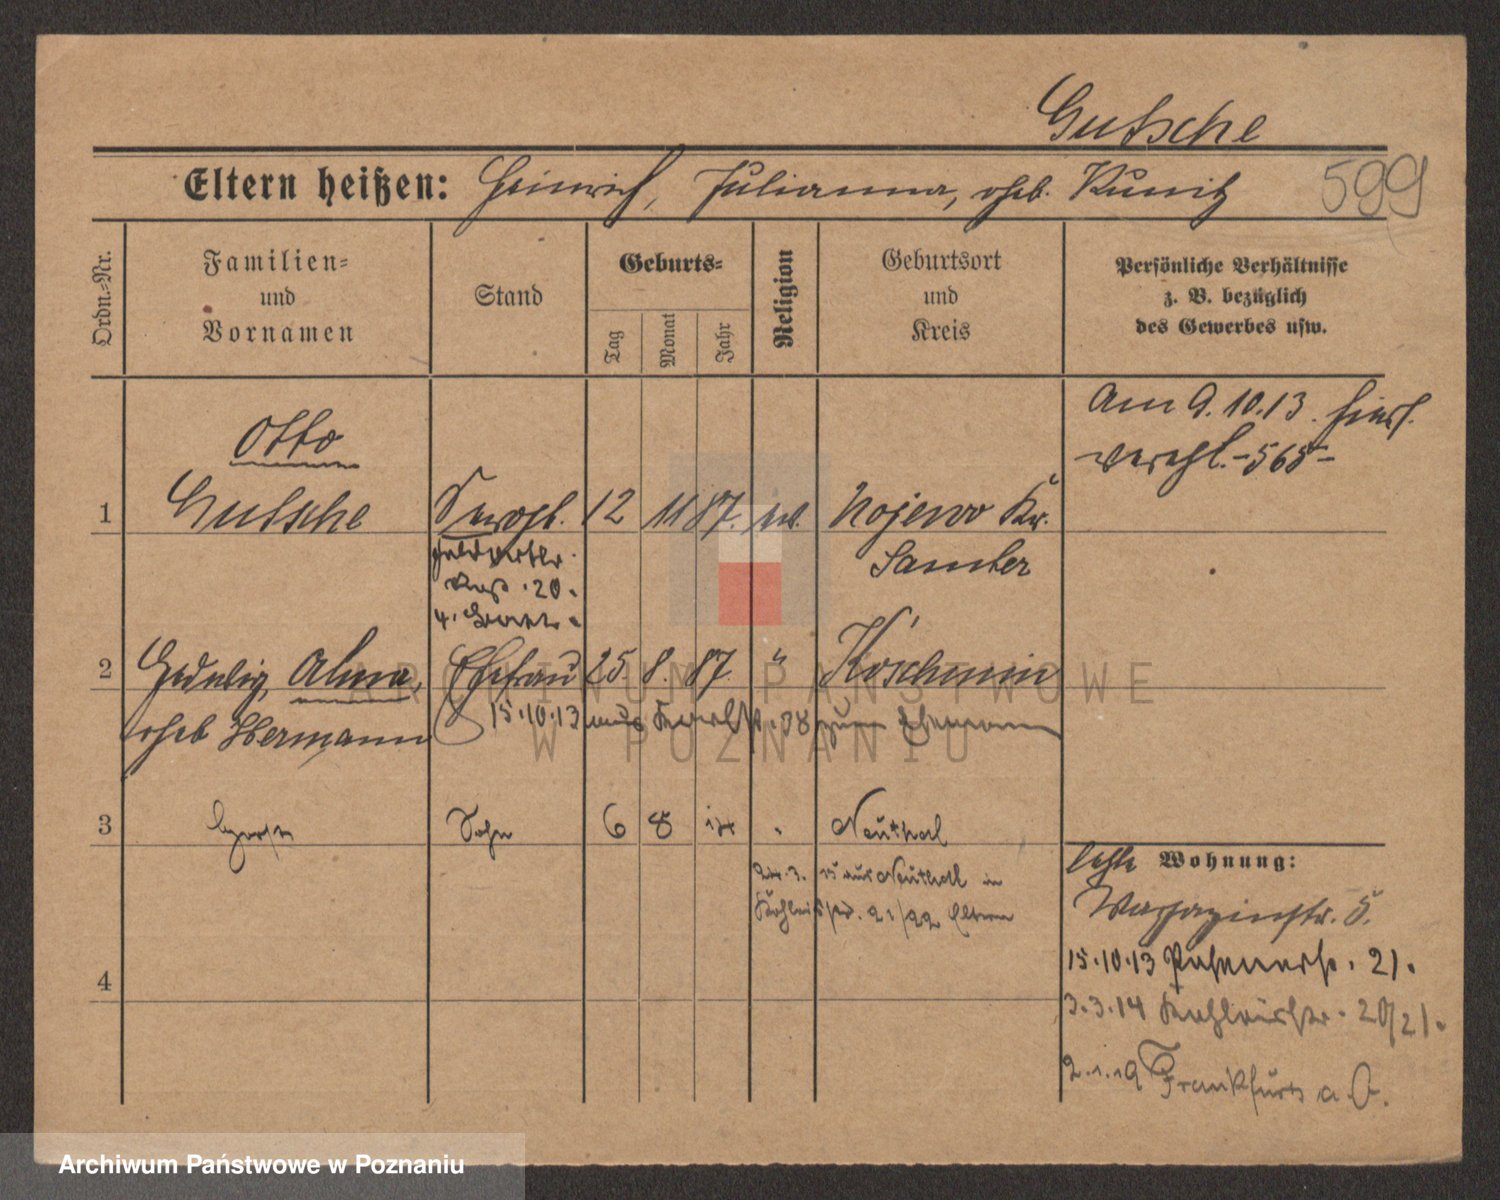 Gutsche
Eltern heißen: Heinrich, Julianna, geb. Kunitz
599
Ordn.-Nr.
Familien-
und
Vornamen
Stand
Geburts-
Tag
Monat
Jahr
Religion
Geburtsort
und
Kreis
Persönliche Verhältnisse
z. B. bezüglich
des Gewerbes usw.
Am 9.10.13. hier
verehl. -565-
Otto
1 Gutsche 12 11 87. Nojewo Kr.
Samter
20.
4.
2 Hedwig, Alma, Ehefrau 25. 8. 87. " Koschmin
geb Hermann
15.10.13 zum Ehemann
3 Horst Sohn 6 8 14 Neuthal
aus Neuthal in
21/22 Eltern
letzte Wohnung:
Magazinstr. 5.
15.10.13 Posenerstr. 21.
3.3.14 20/21.
2.1.19 Frankfurt a O.
4
ARCHIWUM PAŃSTWOWE
W POZNANIU
Archiwum Państwowe w Poznaniu